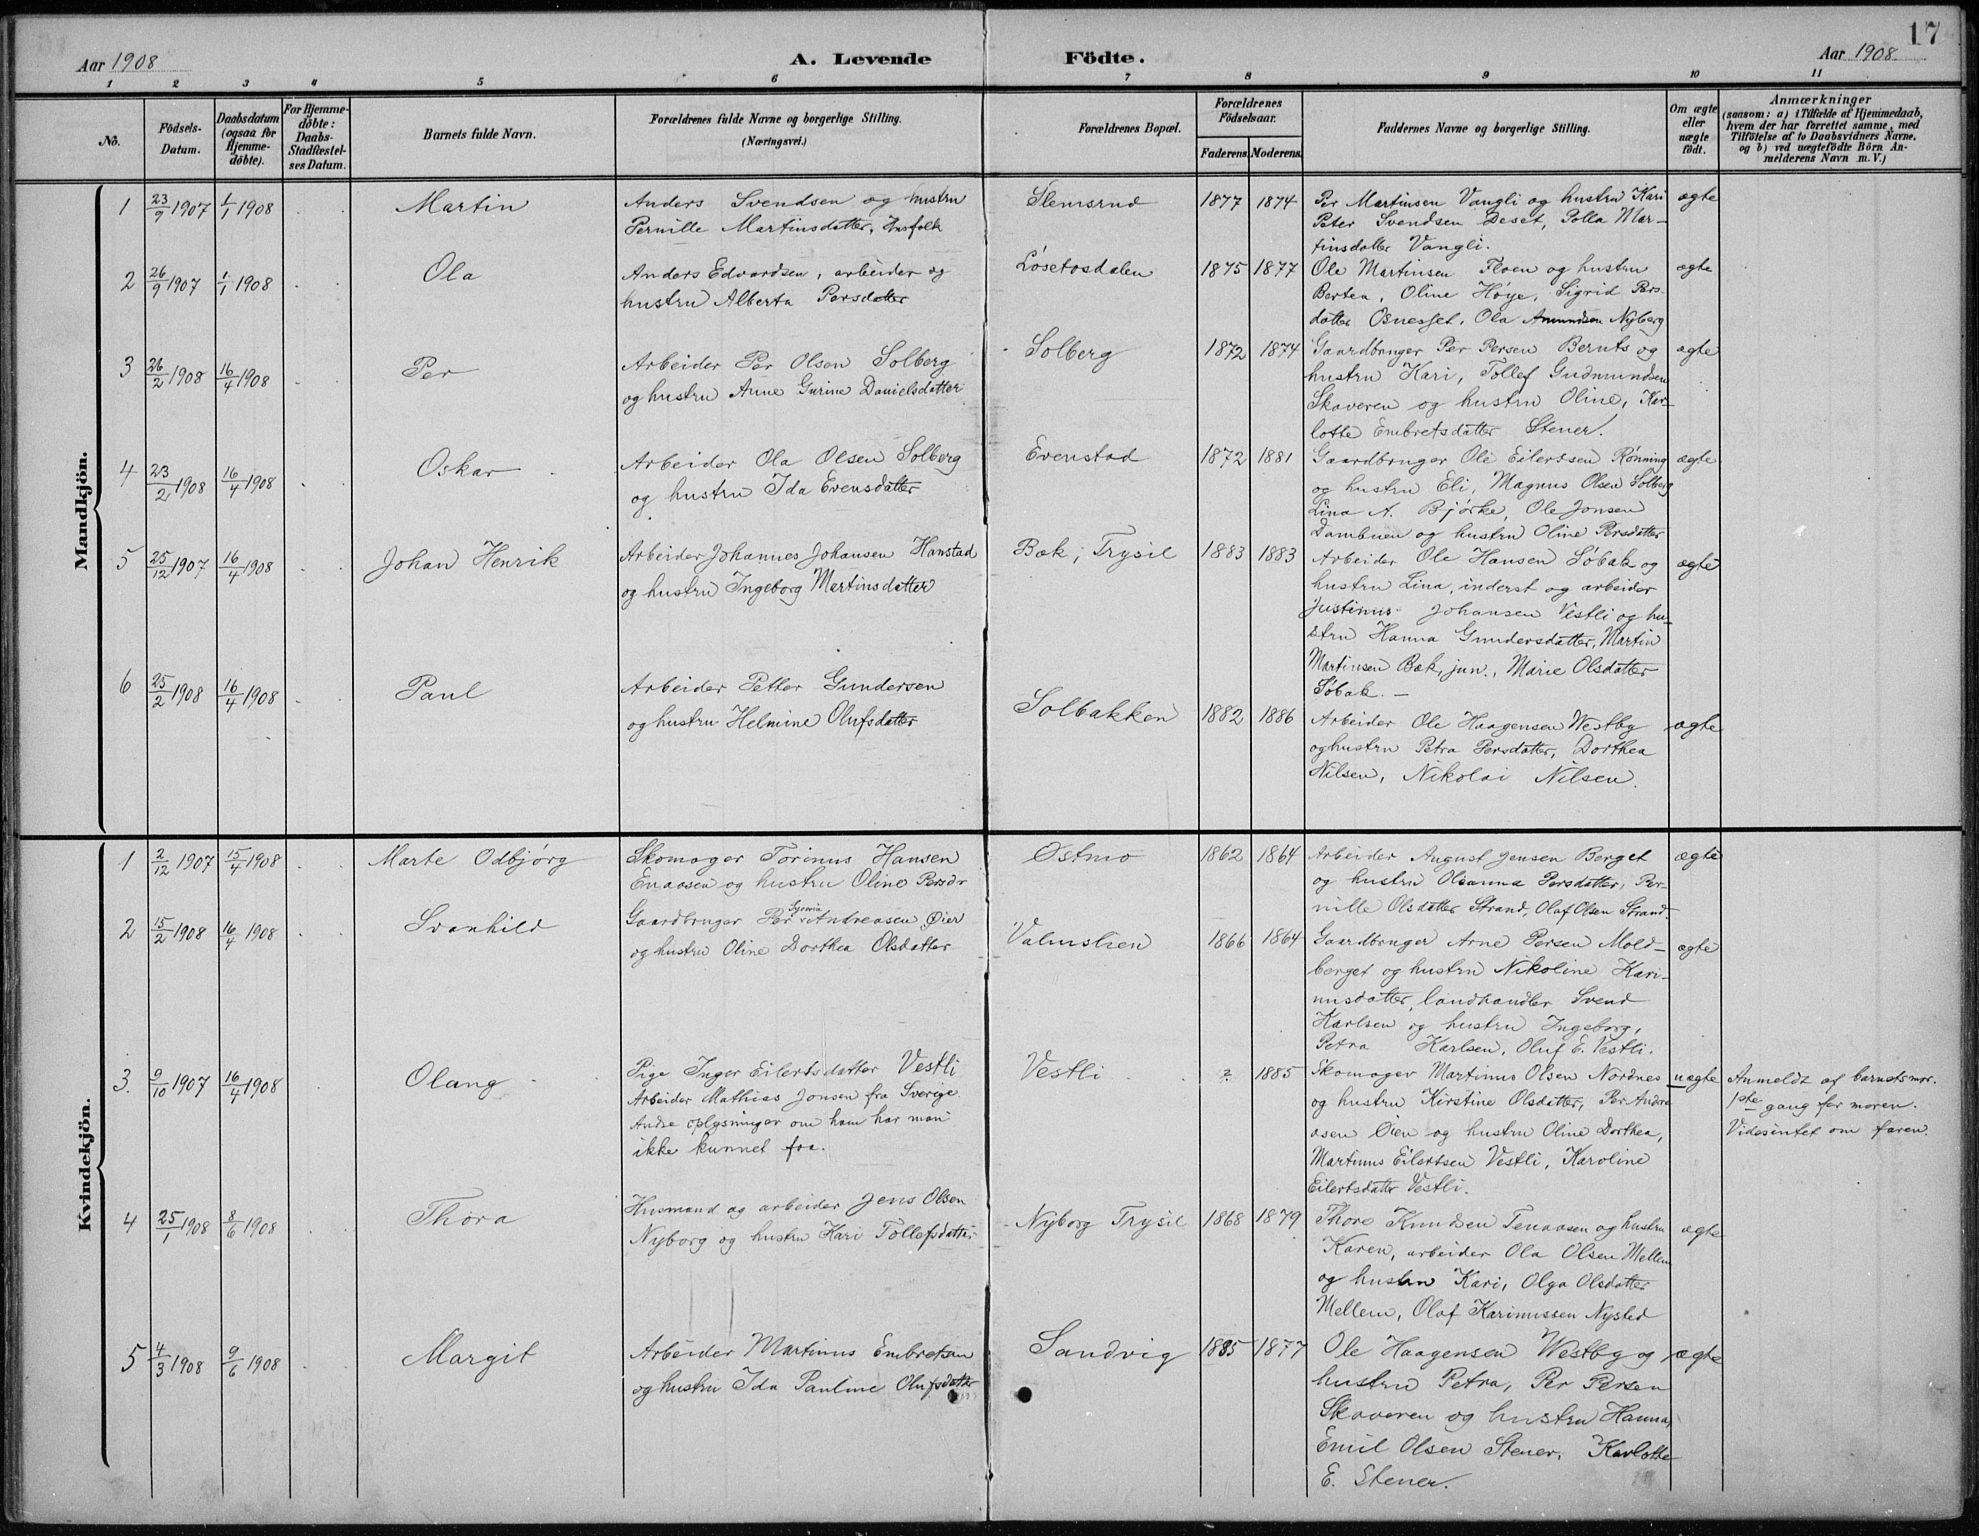 17
Aar 1908
A. Levende Födte.
Aar 1908
1 2 3 4 5 6 7 8 9 10 11
No.
Födsels-
Datum.
Daabsdatum
(ogsaa for
Hjemme-
döbte).
For Hjemme-
döbte:
Daabs-
Stadfæstel-
ses Datum.
Barnets fulde Navn.
Forældrenes fulde Navne og borgerlige Stilling.
(Næringsvei.)
Forældrenes Bopæl.
Forældrenes
Födselsaar.
Faderens. Moderens.
Faddernes Navne og borgerlige Stilling.
Om ægte
eller
uægte
födt.
Anmærkninger
(saasom: a) i Tilfælde af Hjemmedaab,
hvem der har forrettet samme, med
Tilföielse af to Daabsvidners Navne,
og b) ved uægtefödte Börn An-
melderens Navn m. V.)
Mandkjön.
1 23/9 1907 1/1 1908 Martin
Anders Svendsen og hustru
Pernille Martinsdatter, Insfolk
Slemsrud 1877 1874
Per Martinsen Vangli og hustru Kari
Peter Svendsen Deset, Polla Mar-
tinsdatter Vangli.
ægte
2 26/9 1907 1/1 1908 Ola
Anders Edvardsen, arbeider og
hustru Alberta Persdatter
Løsetosdalen 1875 1877
Ole Martinsen Floen og hustru
Bertea, Oline Høye, Sigrid Pers-
datter Osneset, Ola Amundsen Nyberg
ægte
3 26/2 1908 16/4 1908 Per
Arbeider Per Olsen Solberg
og hustru Anne Gurine Danielsdatter
Solberg 1872 1874
Gaardbruger Per Persen Bernts og
hustru Kari, Tollef Gudmundsen
Skaveren og hustru Oline, Kar-
lotte Embretsdatter Stener.
ægte
4 23/2 1908 16/4 1908 Oskar
Arbeider Ola Olsen Solberg
og hustru Ida Evensdatter
Evenstad 1872 1881
Gaardbruger Ole Eilertsen Rønning
og hustru Eli, Magnus Olsen Solberg
Lina A. Bjørke, Ole Jonsen
Dambuen og hustru Oline Persdatter
ægte
5 25/12 1907 16/4 1908 Johan Henrik
Arbeider Johannes Johansen Hanstad
og hustru Ingeborg Martinsdatter
Bæk, Trysil 1883 1883
Arbeider Ole Hansen Søbak og
hustru Lina, inderst og arbeider
Justinus Johansen Vestli og hu-
stru Hanna Gundersdatter, Martin
Martinsen Bæk, jun., Marie Olsdatter
Søbak. –
ægte
6 25/2 1908 16/4 1908 Paul
Arbeider Petter Gundersen
og hustru Helmine Olufsdatter
Solbakken 1882 1886
Arbeider Ole Haagensen Westby
og hustru Petra Persdatter, Dorthea
Nilsen, Nikolai Nilsen.
ægte
Kvindekjön.
1 2/12 1907 15/4 1908 Marte Odbjørg
Skomager Torinus Hansen
Enaasen og hustru Oline Persdr
Østmo 1862 1864
Arbeider August Jensen Berget
og hustru Oleanna Persdatter, Per-
nille Olsdatter Strand, Olaf Olsen Strand.
ægte
2 15/2 1908 16/4 1908 Svanhild
Gaardbruger Per Andreasen Øier
og hustru Oline Dorthea Olsdatter
1866 1864
Gaardbruger Arne Persen Mold-
berget og hustru Nikoline Kari-
nusdatter, landhandler Svend
Karlsen og hustru Ingeborg,
Petra Karlsen, Oluf E. Vestli.
ægte
3. 9/10 1907 16/4 1908 Olaug
Pige Inger Eilertsdatter Vestli
Arbeider Mathias Jonsen fra Sverige
Andre oplysninger om ham har man
ikke kunnet faa.
Vestli ? 1885
Skomager Martinus Olsen Nordnes
og hustru Kirstine Olsdatter, Per Andre
asen Øien og hustru Oline Dorthea,
Martinus Eilertsen Vestli, Karoline
Eilertsdatter Vestli.
uægte
Anmeldt af barnets mor.
1ste gang for moren.
Vides intet om faren.
4 25/1 1908 8/6 1908 Thora
Husmand og arbeider Jens Olsen
Nyborg og hustru Kari Tollefsdatter
Nyborg Trysil 1868 1879
Thore Knudsen Tenaasen og hustru
Karen, arbeider Ola Olsen Mellem
og hustru Kari, Olga Olsdatter
Mellem, Olaf Karinussen Nysted
ægte
5 4/3 1908 9/6 1908 Margit
Arbeider Martinus Embretsen
og hustru Ida Pauline Olufsdatter
Sandvig 1885 1877
Ole Haagensen Westby og
hustru Petra, Per Persen
Skaveren og hustru Hanna,
Emil Olsen Stener, Karlotte
E. Stener.
ægte